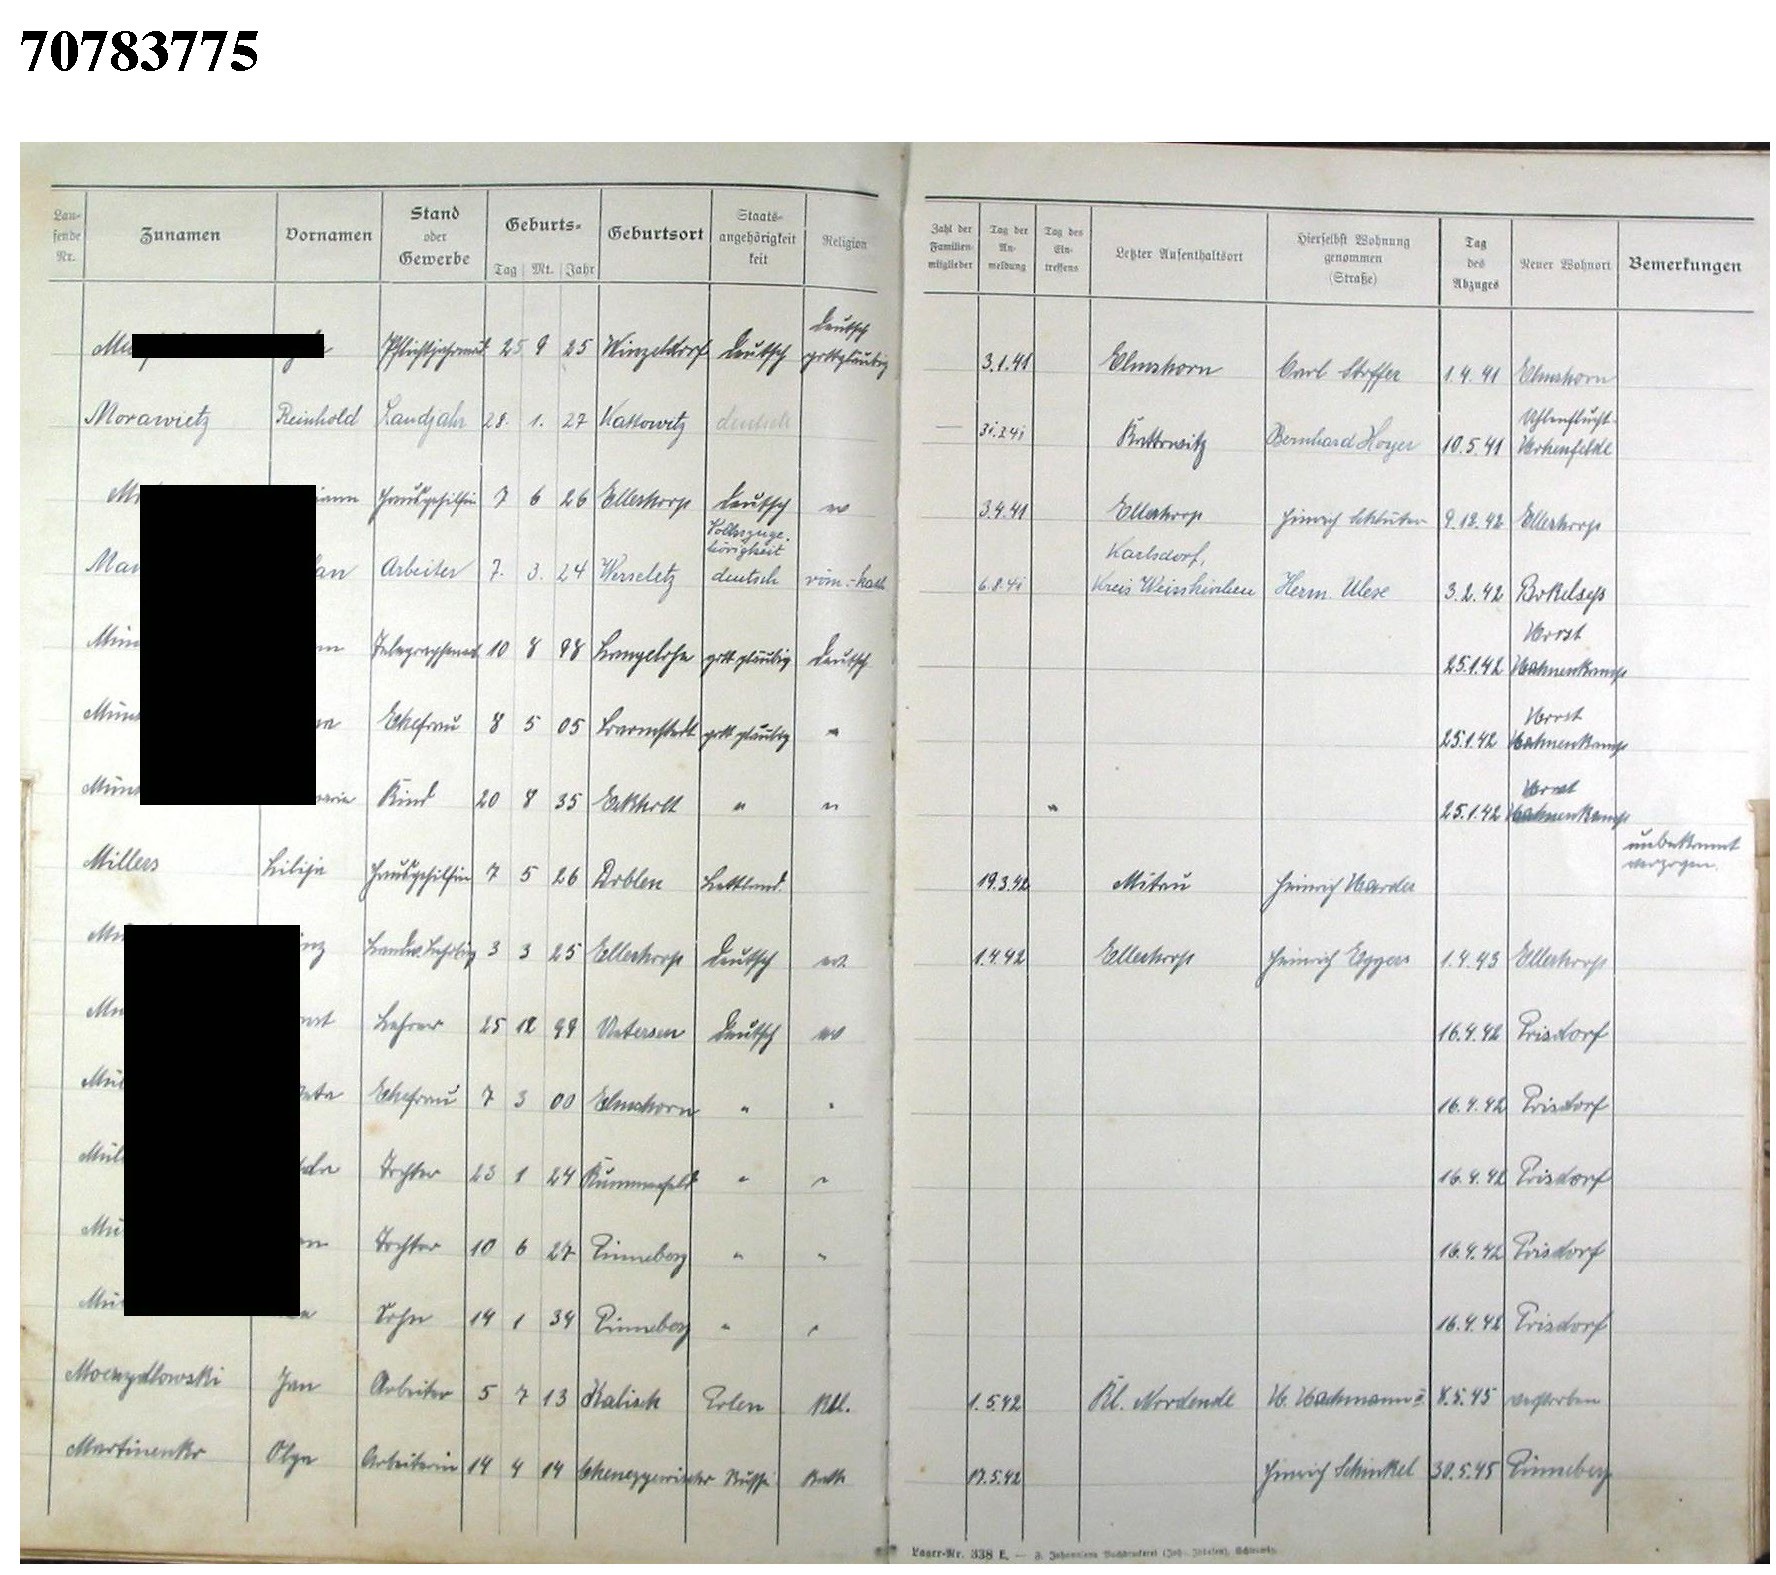 70783775
Laufende Nr. Zunamen Vornamen Stand oder Gewerbe Geburts- Tag Mt. Jahr Geburtsort Staatsangehörigkeit keit Religion Zahl der Familienmitglieder Tag der Anmeldung Tag des Eintreffens Letzter Aufenthaltsort Hierselbst Wohnung genommen (Straße) Tag des Abzuges Neuer Wohnort Bemerkungen
25 9 25 Winzeldorf Deutsch Deutsch gottgläubig 3.1.41 Elmshorn Carl Steffen 1.4.41 Elmshorn
Morawietz Reinhold Landjahr 28. 1. 27 Kattowitz deutsch Kattowitz Bernhard Hoyer 10.5.41
Hausgehilfin 7 6 26 Ellerhoop Deutsch ev 3.4.41 Ellerhoop Hinrich Schlüter 9.12.42 Ellerhoop
Arbeiter 7. 3. 24 Werseletz Volkszugehörigkeit deutsch röm.-kath 6.8.41 Karlsdorf, Kreis Weisskirchen Herm. 3.2.42 Bokelseß
10 8 98 Langelohe gottgläubig Deutsch 25.1.42 Horst Hahnenkamp
Ehefrau 8 5 05 Barmstedt gottgläubig " 25.1.42 Horst Hahnenkamp
Kind 20 8 35 Eckholt " " " 25.1.42 Horst Hahnenkamp
Millers Lilija Hausgehilfin 7 5 26 Doblen Lettland 19.3.42 Mitau Heinrich Harder unbekannt verzogen.
Landw. Lehrling 3 3 25 Ellerhoop Deutsch ev. 1.4.42 Ellerhoop Heinrich Eggers 1.4.43 Ellerhoop
Lehrer 25 12 99 Uetersen Deutsch ev 16.4.42 Prisdorf
Ehefrau 7 3 00 Elmshorn " " 16.4.42 Prisdorf
Tochter 23 1 24 Kummerfeld " " 16.4.42 Prisdorf
Tochter 10 6 27 Pinneberg " " 16.4.42 Prisdorf
Sohn 14 1 34 Pinneberg " " 16.4.42 Prisdorf
Moczydlowski Jan Arbeiter 5 7 13 Kalisch Polen 1.5.42 Kl. Nordende H. Hachmann 8.5.45 verstorben
Martinenko Olga Arbeiterin 14 4 14 Kath 17.5.42 Hinrich Schinkel 30.5.45 Pinneberg
Lager-Nr. 338 E. — J. Johannsens Buchdruckerei (Joh. Ibbeken), Schleswig.